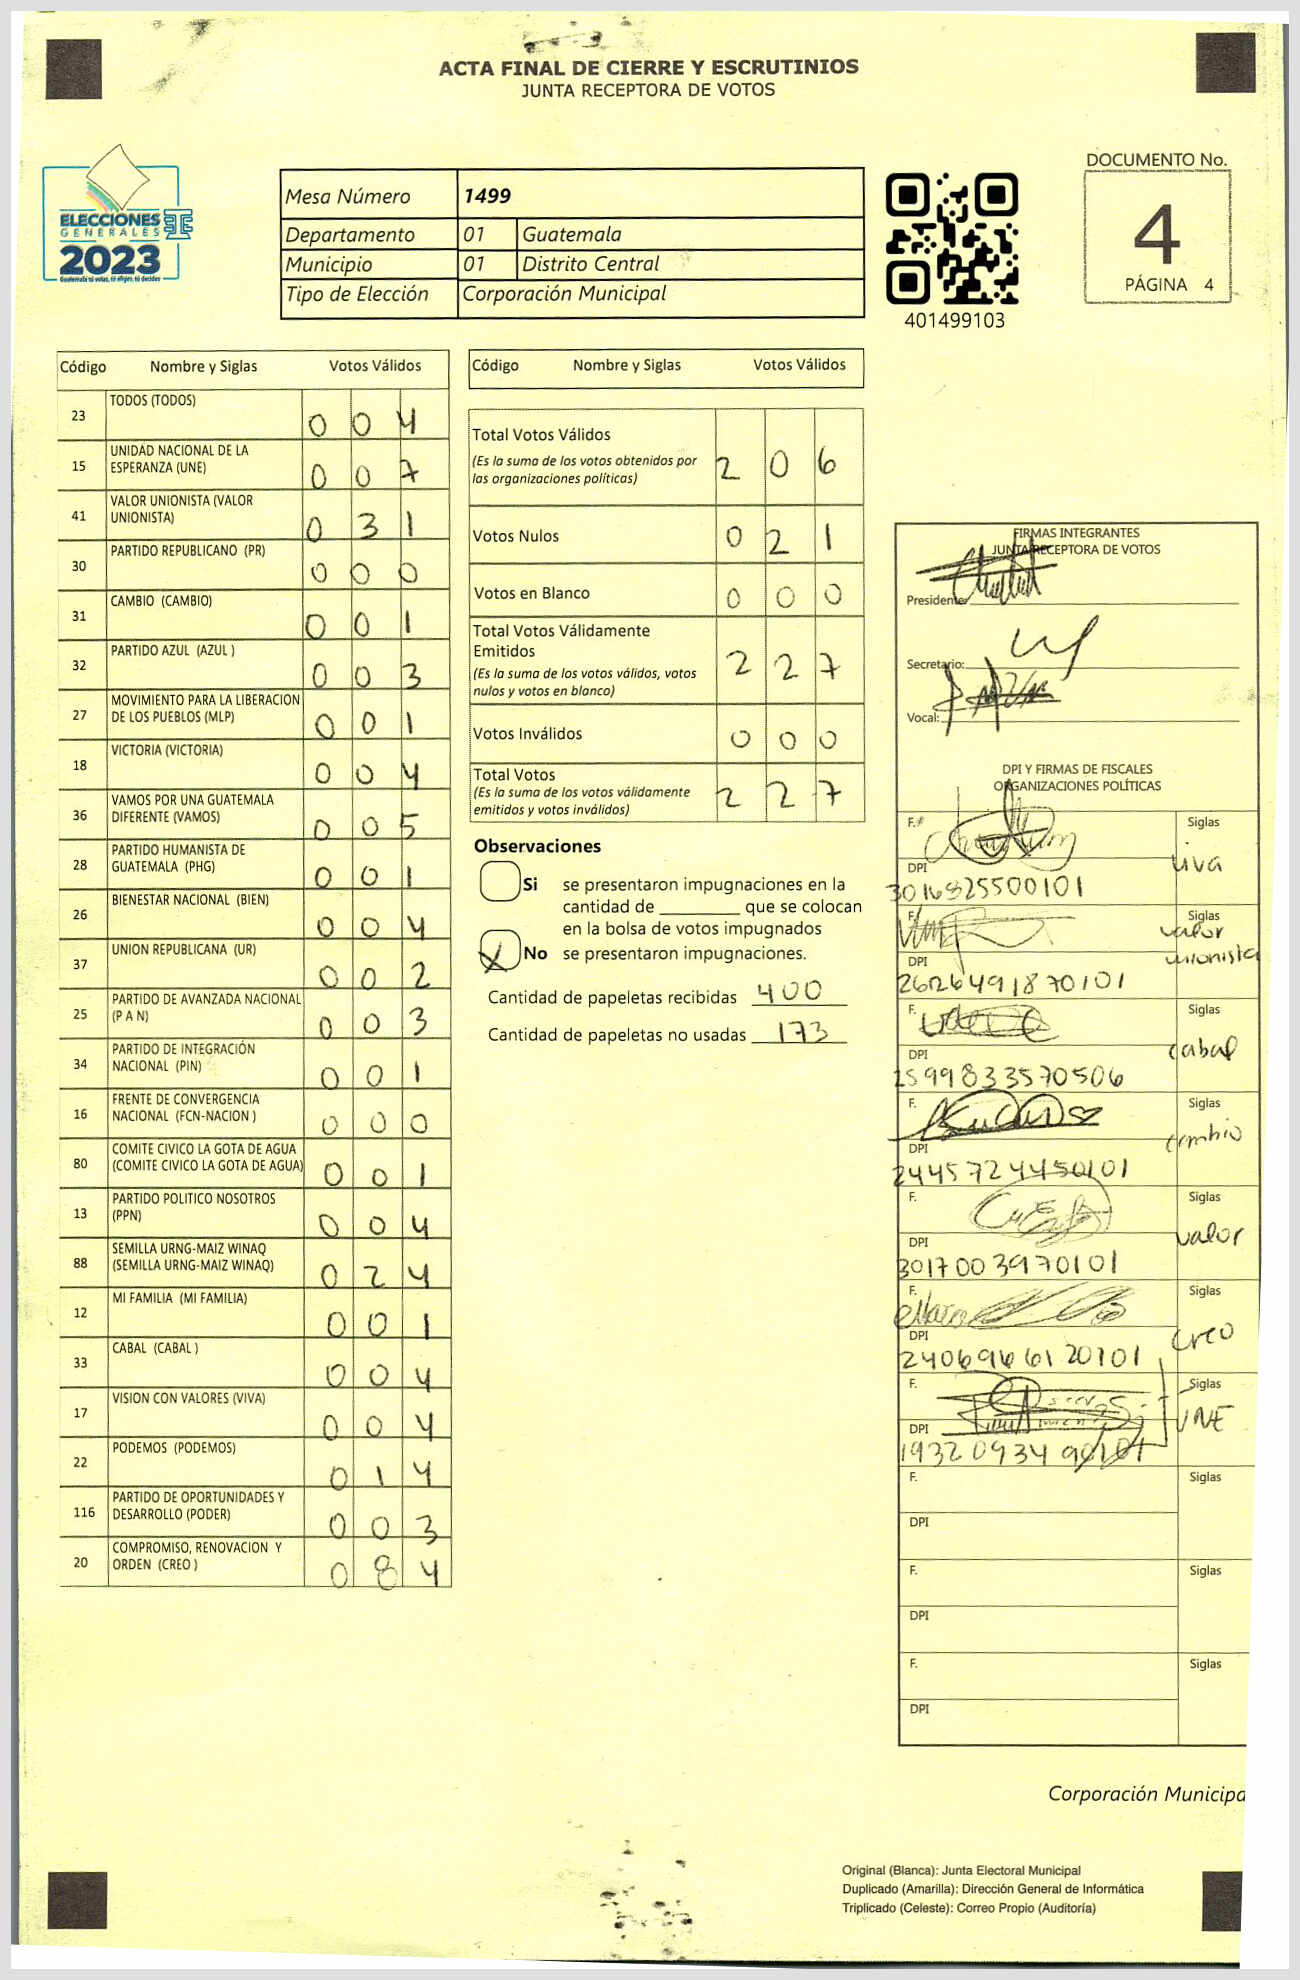 ACTA FINAL DE CIERRE Y ESCRUTINIOS
JUNTA RECEPTORA DE VOTOS
ELECCIONES
GENERALES
2023
Guatemala tú votas, tú eliges, tú decides
Mesa Número 1499
Departamento 01 Guatemala
Municipio 01 Distrito Central
Tipo de Elección Corporación Municipal
401499103
DOCUMENTO No.
4
PÁGINA 4
Código Nombre y Siglas Votos Válidos
23 TODOS (TODOS) 0 0 4
15 UNIDAD NACIONAL DE LA
ESPERANZA (UNE) 0 0 7
41 VALOR UNIONISTA (VALOR
UNIONISTA) 0 3 1
30 PARTIDO REPUBLICANO (PR) 0 0 0
31 CAMBIO (CAMBIO) 0 0 1
32 PARTIDO AZUL (AZUL ) 0 0 3
27 MOVIMIENTO PARA LA LIBERACION
DE LOS PUEBLOS (MLP) 0 0 1
18 VICTORIA (VICTORIA) 0 0 4
36 VAMOS POR UNA GUATEMALA
DIFERENTE (VAMOS) 0 0 5
28 PARTIDO HUMANISTA DE
GUATEMALA (PHG) 0 0 1
26 BIENESTAR NACIONAL (BIEN) 0 0 4
37 UNION REPUBLICANA (UR) 0 0 2
25 PARTIDO DE AVANZADA NACIONAL
(P A N) 0 0 3
34 PARTIDO DE INTEGRACIÓN
NACIONAL (PIN) 0 0 1
16 FRENTE DE CONVERGENCIA
NACIONAL (FCN-NACION ) 0 0 0
80 COMITE CIVICO LA GOTA DE AGUA
(COMITE CIVICO LA GOTA DE AGUA) 0 0 1
13 PARTIDO POLITICO NOSOTROS
(PPN) 0 0 4
88 SEMILLA URNG-MAIZ WINAQ
(SEMILLA URNG-MAIZ WINAQ) 0 2 4
12 MI FAMILIA (MI FAMILIA) 0 0 1
33 CABAL (CABAL ) 0 0 4
17 VISION CON VALORES (VIVA) 0 0 4
22 PODEMOS (PODEMOS) 0 1 4
116 PARTIDO DE OPORTUNIDADES Y
DESARROLLO (PODER) 0 0 3
20 COMPROMISO, RENOVACION Y
ORDEN (CREO ) 0 8 4
Código Nombre y Siglas Votos Válidos
Total Votos Válidos
(Es la suma de los votos obtenidos por
las organizaciones políticas) 2 0 6
Votos Nulos 0 2 1
Votos en Blanco 0 0 0
Total Votos Válidamente
Emitidos
(Es la suma de los votos válidos, votos
nulos y votos en blanco) 2 2 7
Votos Inválidos 0 0 0
Total Votos
(Es la suma de los votos válidamente
emitidos y votos inválidos) 2 2 7
Observaciones
Si se presentaron impugnaciones en la
cantidad de ________ que se colocan
en la bolsa de votos impugnados
X No se presentaron impugnaciones.
Cantidad de papeletas recibidas 400
Cantidad de papeletas no usadas 173
FIRMAS INTEGRANTES
JUNTA RECEPTORA DE VOTOS
Presidente:
Secretario:
Vocal:
DPI Y FIRMAS DE FISCALES
ORGANIZACIONES POLÍTICAS
F. Siglas
viva
DPI
3016825500101
F. Siglas
valor
unionista
DPI
2626491870101
F. Siglas
cabal
DPI
2599833570506
F. Siglas
cambio
DPI
2445724450101
F. Siglas
valor
DPI
3017003970101
F. Siglas
creo
DPI
2406966120101
F. Siglas
UNE
DPI
1932093490101
F. Siglas
DPI
F. Siglas
DPI
F. Siglas
DPI
Corporación Municipa
Original (Blanca): Junta Electoral Municipal
Duplicado (Amarilla): Dirección General de Informática
Triplicado (Celeste): Correo Propio (Auditoría)